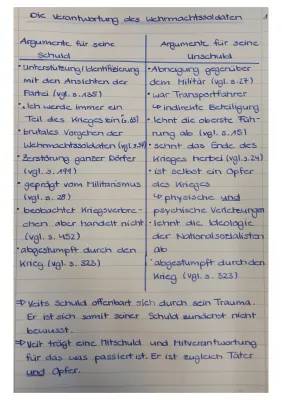 Die Verantwortung des Wehrmachtssoldaten
1
Argumente für seine
Schuld
• unterstützung/Identifizierung
mit den Ansichten der
Partei (vgl. s. 135)
• "Ich werde immer ein
Teil des Krieges sein
• brutales Vorgehen der
Wehrmachtssoldaten
• Zerstörung ganzer Dörfer
(vgl. s.
• geprägt vom Militarismus
(vgl. s.
• beobachtet Kriegsverbre-
chen, aber handelt nicht
(vgl. s. 452)
• abgestumpft durch den
Krieg (vgl. s. 323)
Argumente für seine
Unschuld
• Abneigung gegenüber
dem Militär (vgl. s. 27)
• war Transportfahrer
↳ indirekte Beteiligung
• lehnt die oberste Füh-
rung ab (vgl. s. 15)
• sehnt das Ende des
Krieges herbei (vgl. s. 24)
• ist selbst ein Opfer
des Krieges
↳ physische und
psychische Verletzungen
• lehnt die Ideologie
der Nationalsozialisten
ab
• abgestumpft durch den
Krieg (vgl. s. 323)
⇒ Veits Schuld offenbart sich durch sein Trauma.
Er ist sich somit seiner Schuld zunächst nicht
bewusst.
⇒ Veit trägt eine Mitschuld und Mitverantwortung
für das was passiert ist. Er ist zugleich Täter
und Opfer.